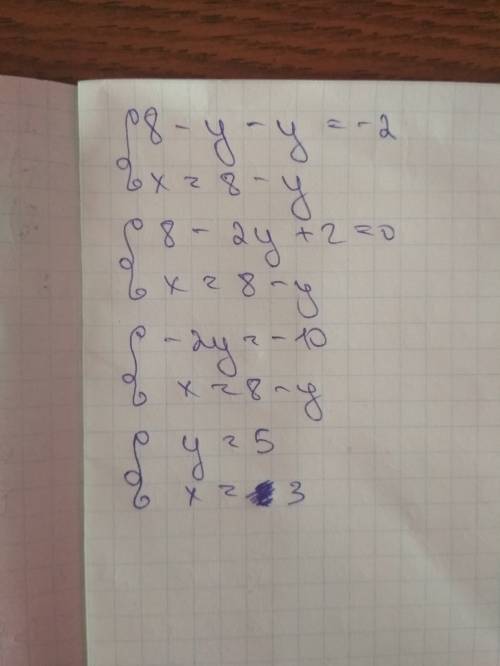 8 - y - y = -2
x = 8 - y
8 - 2y + 2 = 0
x = 8 - y
-2y = -10
x = 8 - y
y = 5
x = 3